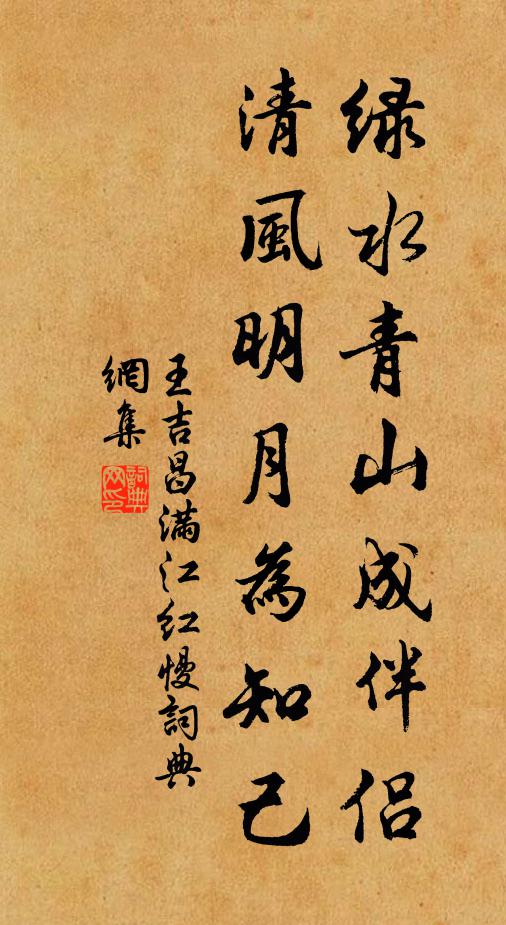 绿水青山成伴侣
清風明月為知己
王吉昌满江红慢詞典
網集
詞典
网印